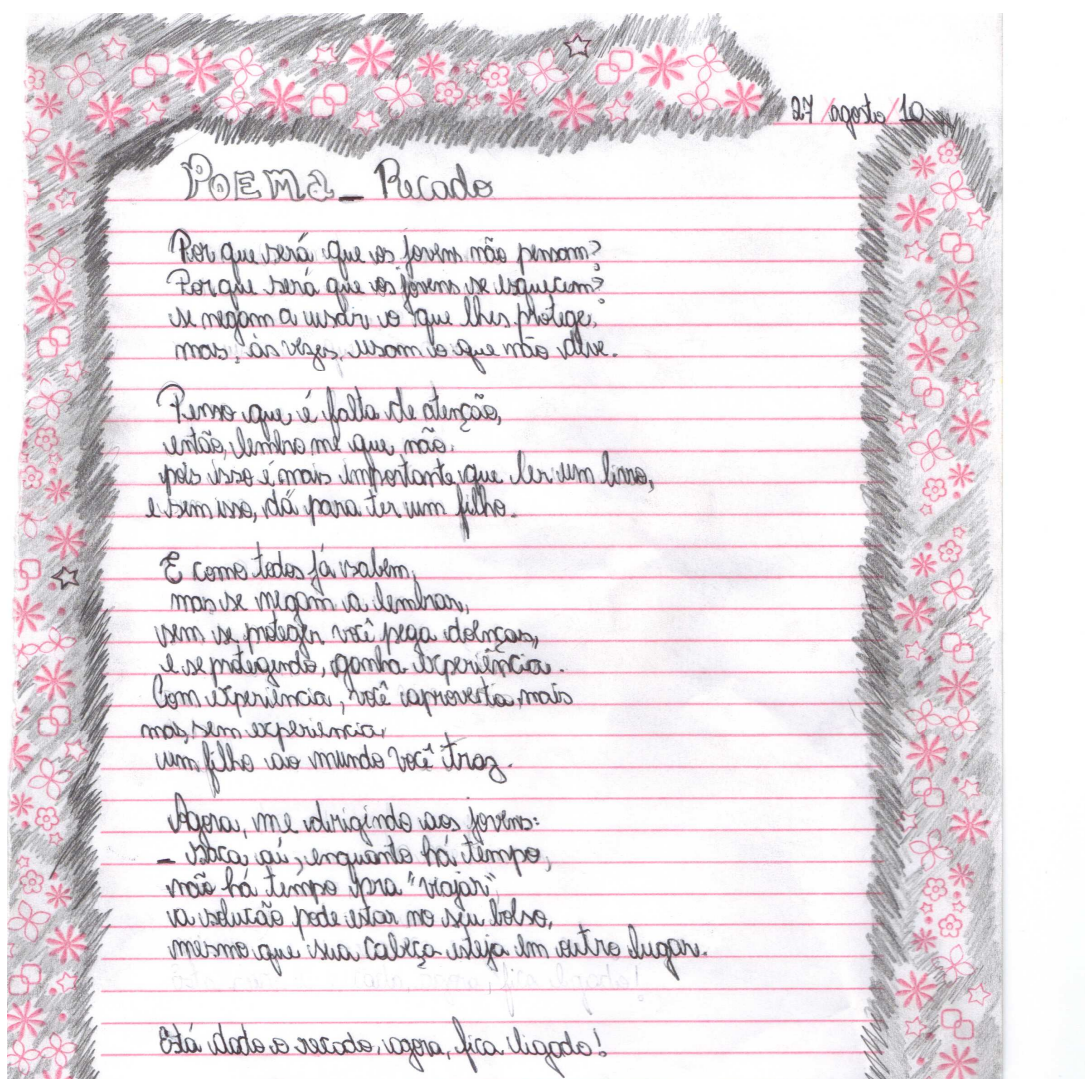 27/agosto/10
POEMA - Recado
Por que será que os jovens não pensam?
Porque será que os jovens se esquecem?
se negam a usar o que lhes protege,
mas, ás vezes, usam o que não deve.
Penso que é falta de atenção,
então, lembro me que não.
pois isso é mais importante que ler um livro,
e sem isso, dá para ter um filho.
E como todos já sabem,
mas se negam a lembrar,
sem se proteger você pega doenças,
e se protegindo, ganha experiência.
Com experiência, você aproveita mais
mas, sem experiencia,
um filho ao mundo você traz.
Agora, me dirigindo aos jovens:
- saca aí, enquanto há têmpo,
não há tempo pra "viajar"
a solução pode estar no seu bolso,
mesmo que sua cabeça esteja em outro lugar.
Está dado o recado, agora, fica ligado!